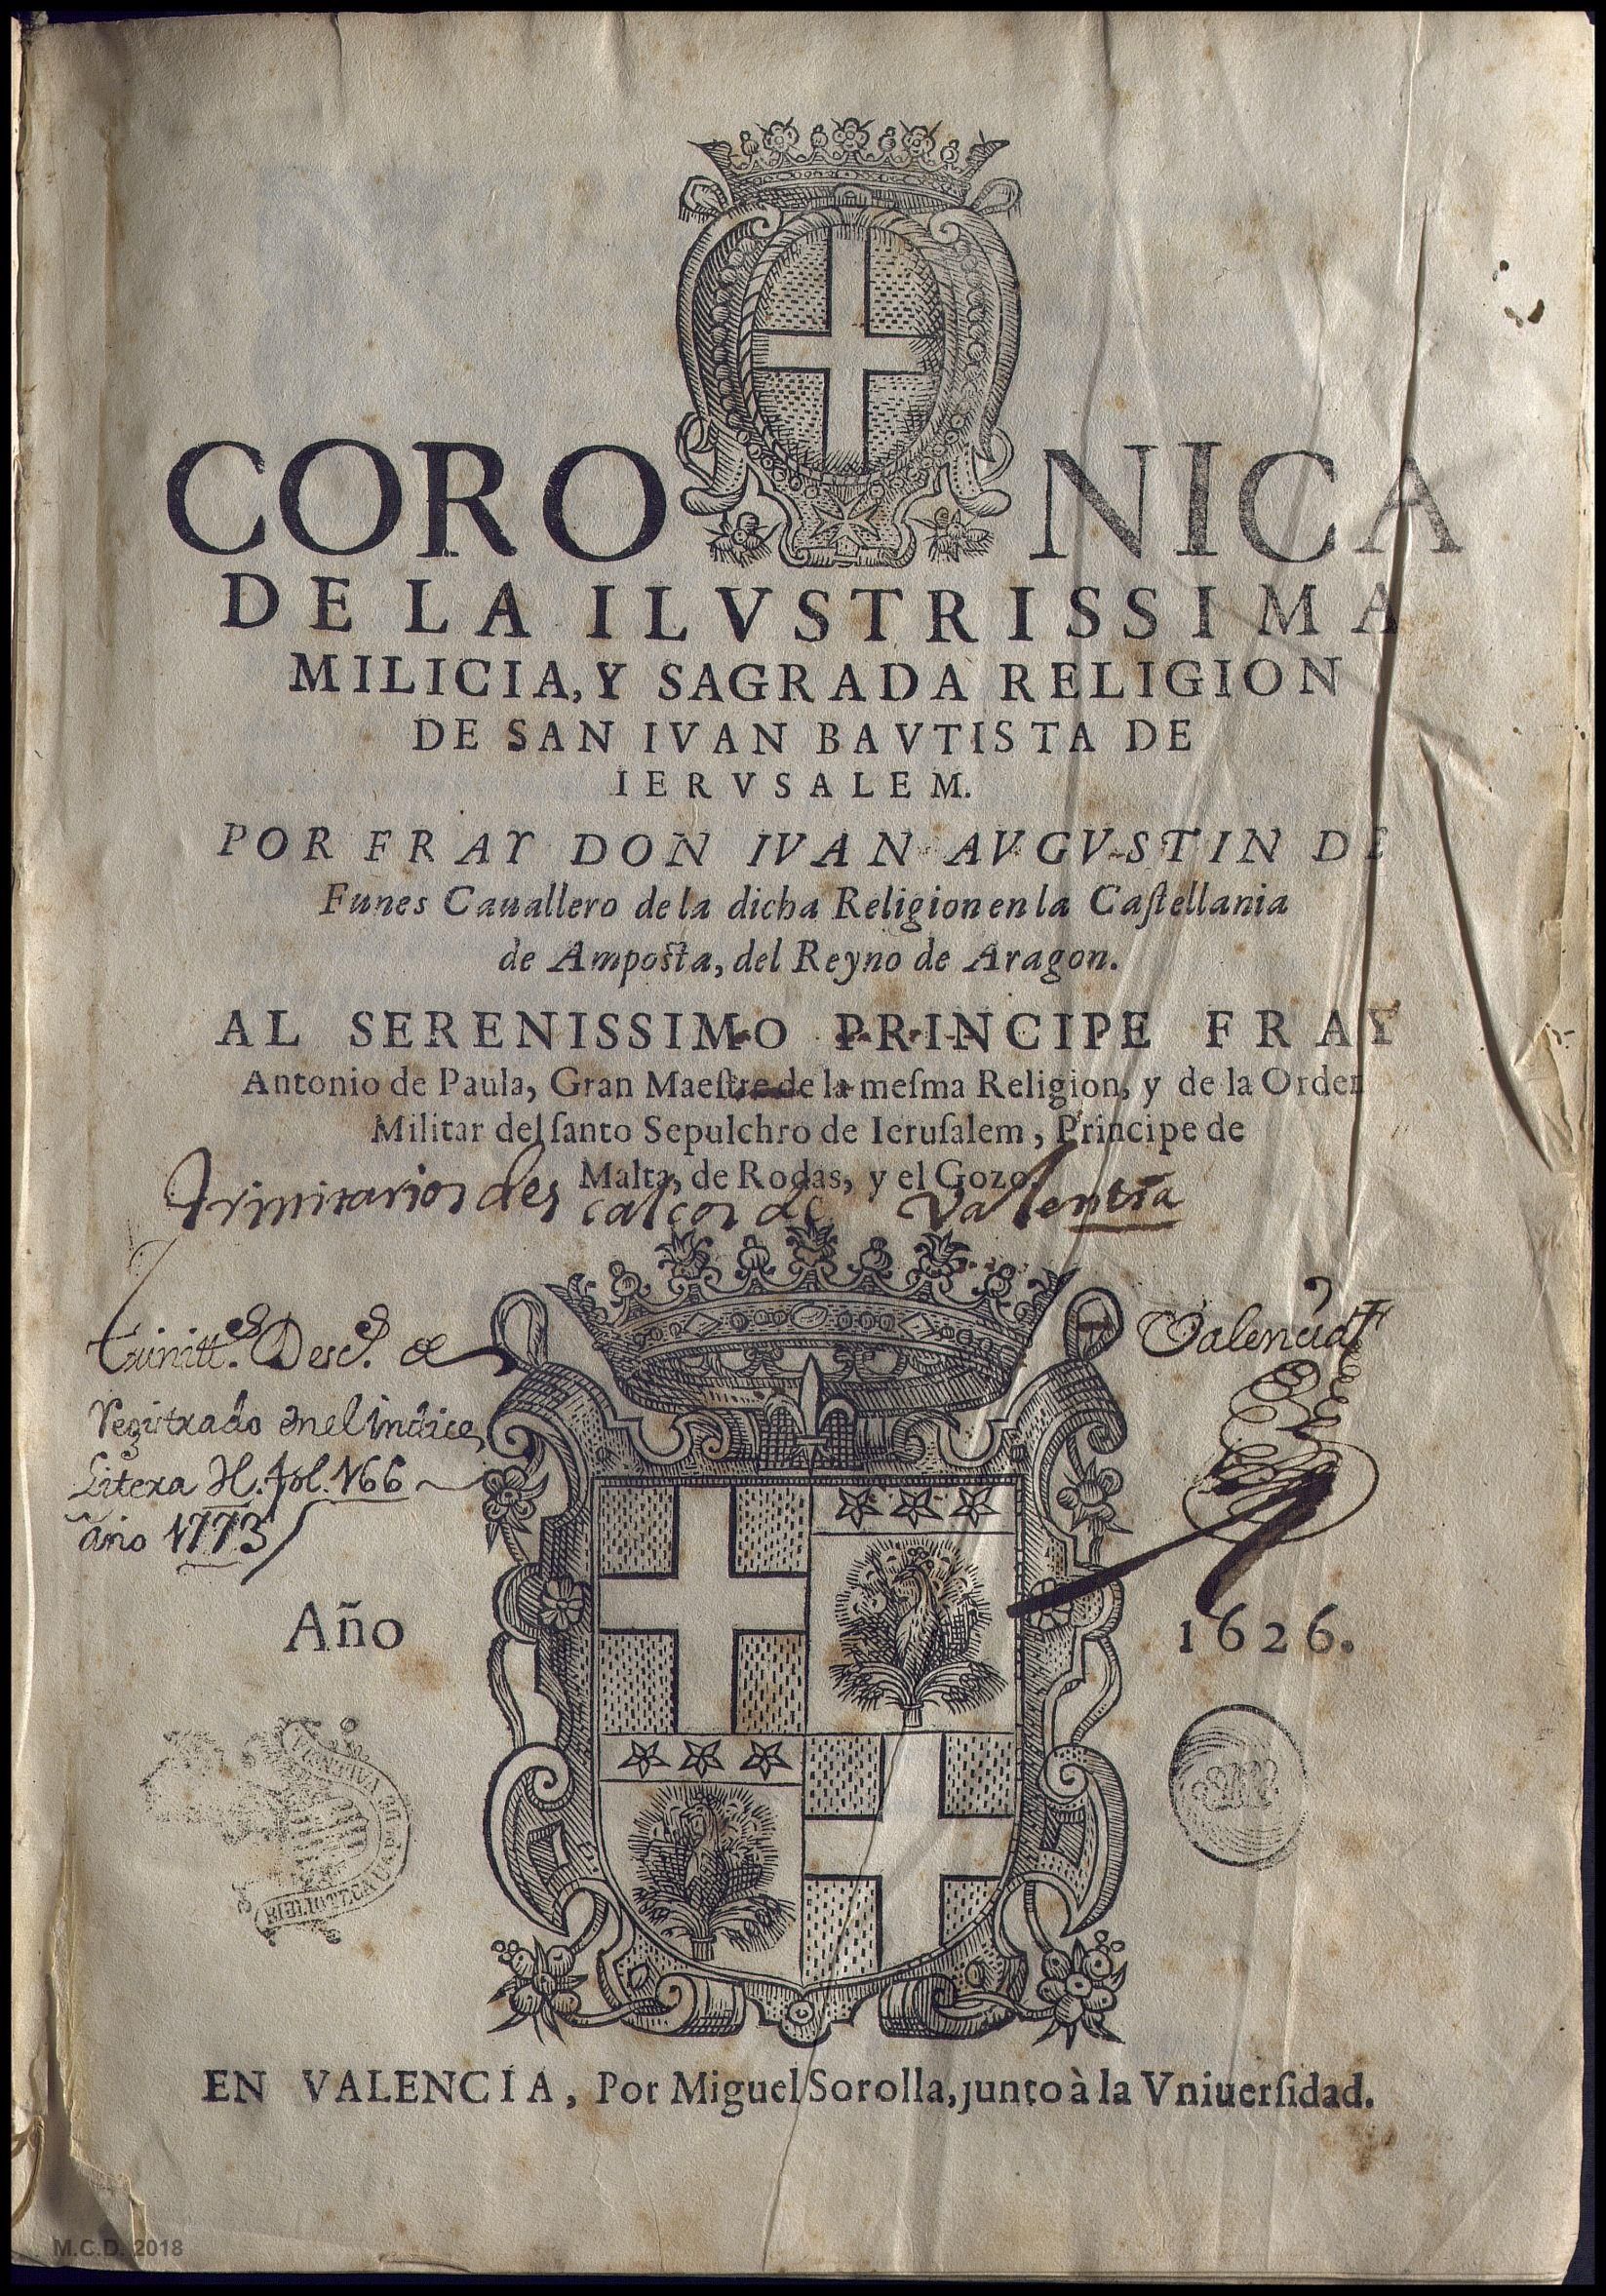 CORONICA
DE LA ILVSTRISSIMA
MILICIA, Y SAGRADA RELIGION
DE SAN IVAN BAVTISTA DE
IERVSALEM.
POR FRAY DON IVAN AVGVSTIN DE
Funes Cauallero de la dicha Religion en la Caſtellania
de Amposta, del Reyno de Aragon.
AL SERENISSIMO PRINCIPE FRAY
Antonio de Paula, Gran Maeſtre de la meſma Religion, y de la Orden
Militar del ſanto Sepulchro de Ieruſalem, Principe de
Malta, de Rodas, y el Gozo.
Trinitarios descalços de Valentia
Trinitt.s Desc.s de Valencia
Regiſtrado en el Indice,
Litera H. fol. 166
año 1773
Año 1626.
BIBLIOTECA
EN VALENCIA, Por Miguel Sorolla, junto à la Vniuerſidad.
M.C.D. 2018